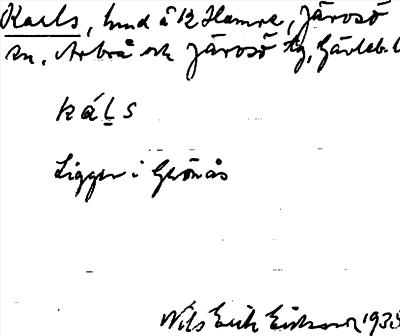 Karls, hmd å K Hamre, Järvsö
sn, Arbrå och Järvsö tg, Gävleb. l
káḻs
Ligger i Gränås
Nils Erik Eriksson 1938